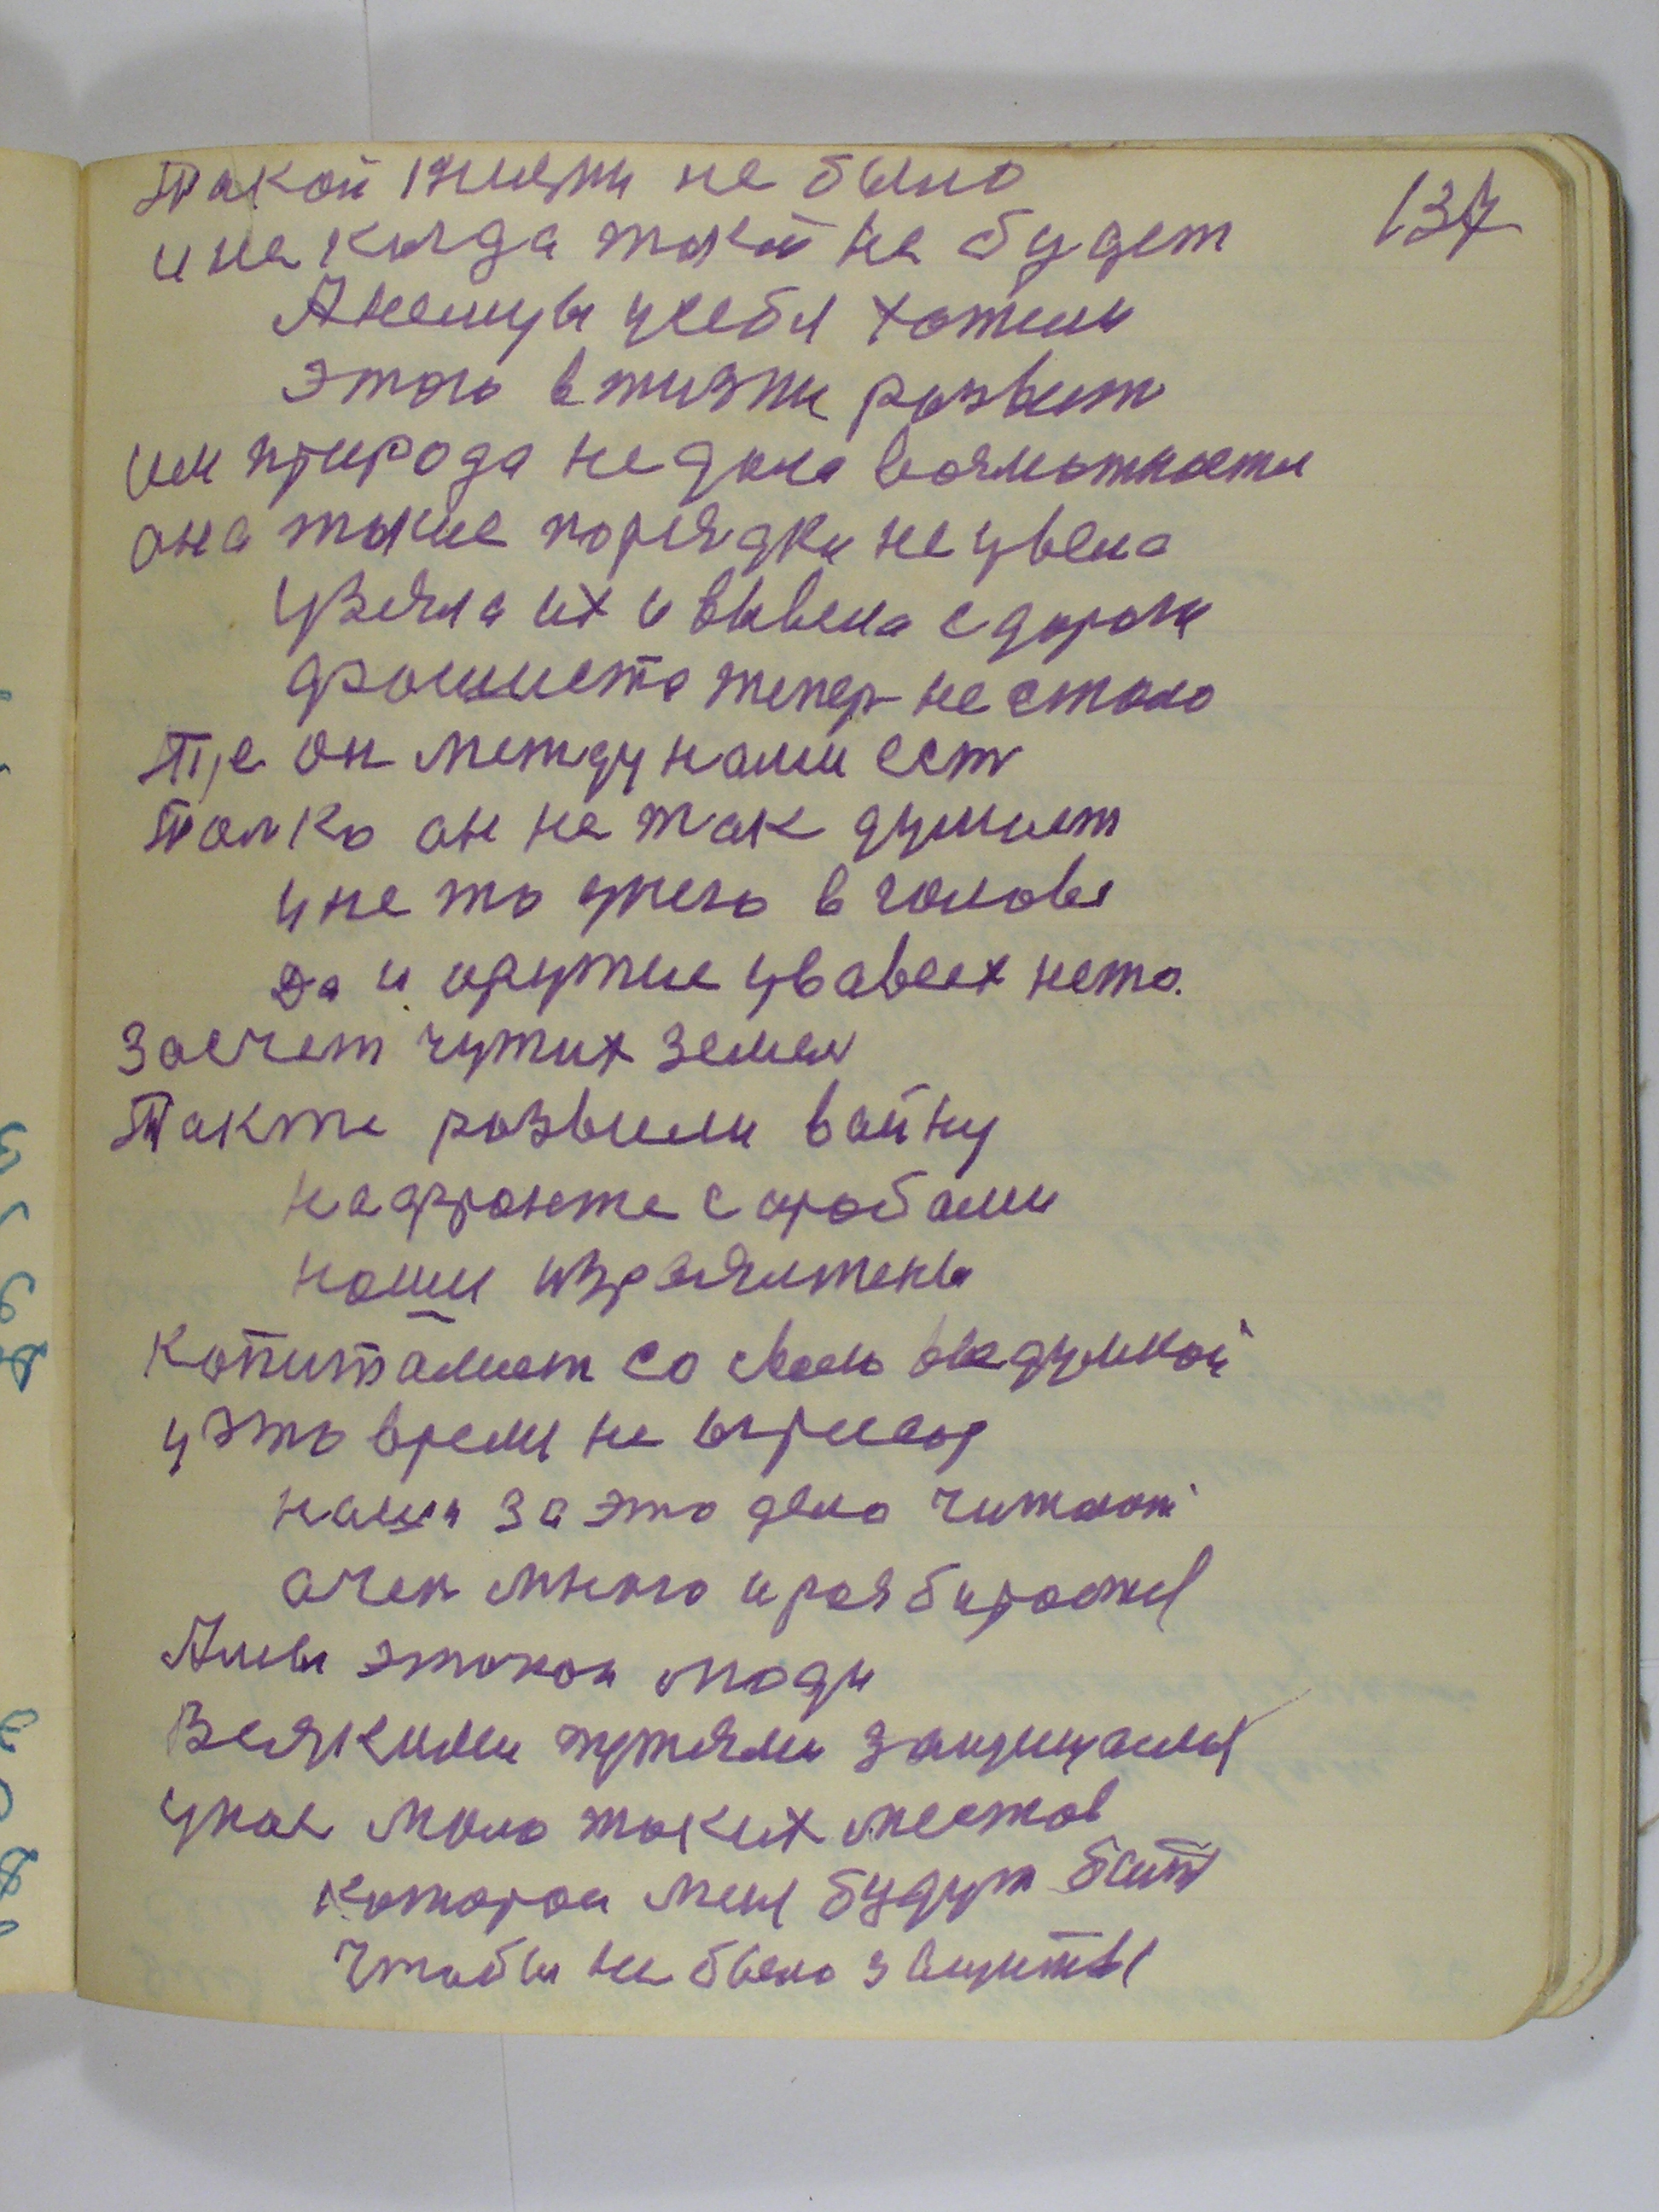 137
Такой жизни не было
и не когда такой не будет
А немцы у себя хотели
этого в жизни развит
им природа не дала возможности
она такие порядки не увела
узяла их и вывела с дороги
фашиста тепер не стало
Где он между нами ест
Толко он не так думает
и не то у него в голове
да и оружие у вавсех нето.
За счет чужих земел
Также развили вайну
на фронте с арабами
наши израялтены
Капиталист со своею выдумкой
у это время не
наши за это дело читают
ачен много и разбираются
А мы этокои люди
Всякими путями защищаемся
у нас мало таких местов
которои меня будут бит
Чтобы не было защиты